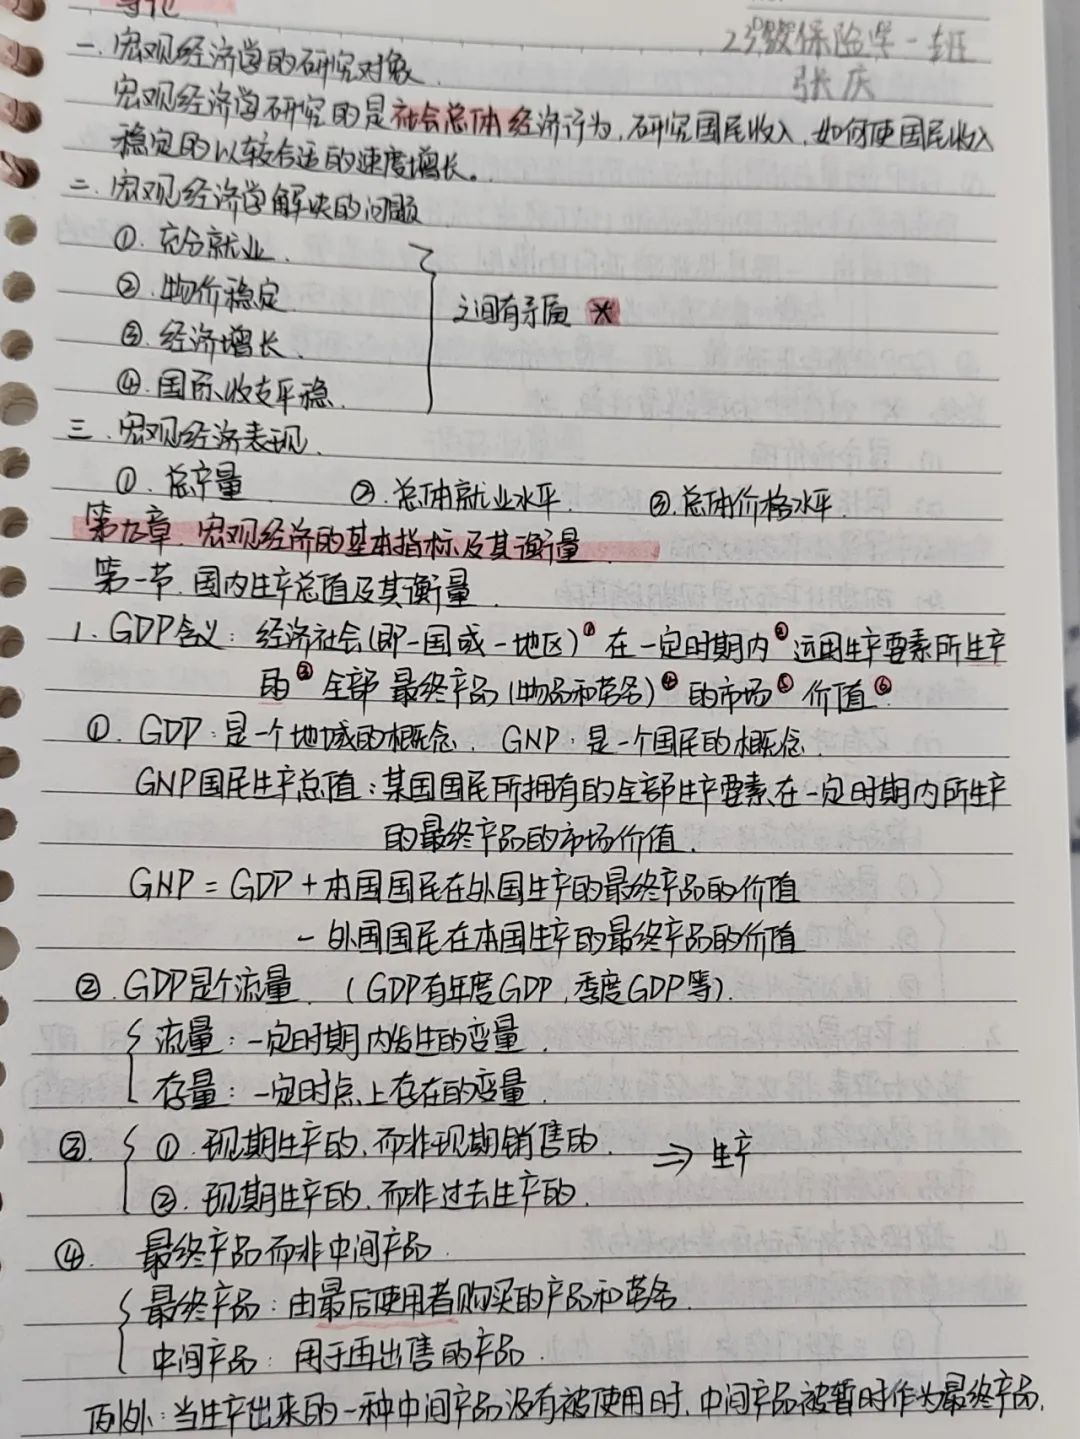 导论
23级保险学一班
张庆
一.宏观经济学的研究对象.
宏观经济学研究的是社会总体经济行为,研究国民收入,如何使国民收入
稳定的以较合适的速度增长。
二.宏观经济学解决的问题
①.充分就业.
②.物价稳定.
③.经济增长.
④.国际收支平稳.
之间有矛盾 *
三.宏观经济表现.
①.总产量 ②.总体就业水平. ③.总体价格水平.
第九章.宏观经济的基本指标及其衡量
第一节.国内生产总值及其衡量.
1.GDP含义:经济社会(即一国或一地区)① 在一定时期内② 运用生产要素所生产
的③ 全部 最终产品(物品和劳务)④ 的市场⑤ 价值⑥.
①.GDP:是一个地域的概念. GNP:是一个国民的概念.
GNP国民生产总值:某国国民所拥有的全部生产要素在一定时期内所生产
的最终产品的市场价值.
GNP=GDP+本国国民在外国生产的最终产品的价值
-外国国民在本国生产的最终产品的价值
②.GDP是个流量.(GDP有年度GDP,季度GDP等).
{流量:一定时期内发生的变量.
存量:一定时点上存在的变量.
③.{①.现期生产的,而非现期销售的. ⇒生产
②.现期生产的,而非过去生产的.
④. 最终产品而非中间产品.
{最终产品:由最后使用者购买的产品和劳务.
中间产品:用于再出售的产品.
例外:当生产出来的一种中间产品没有被使用时,中间产品被暂时作为最终产品.